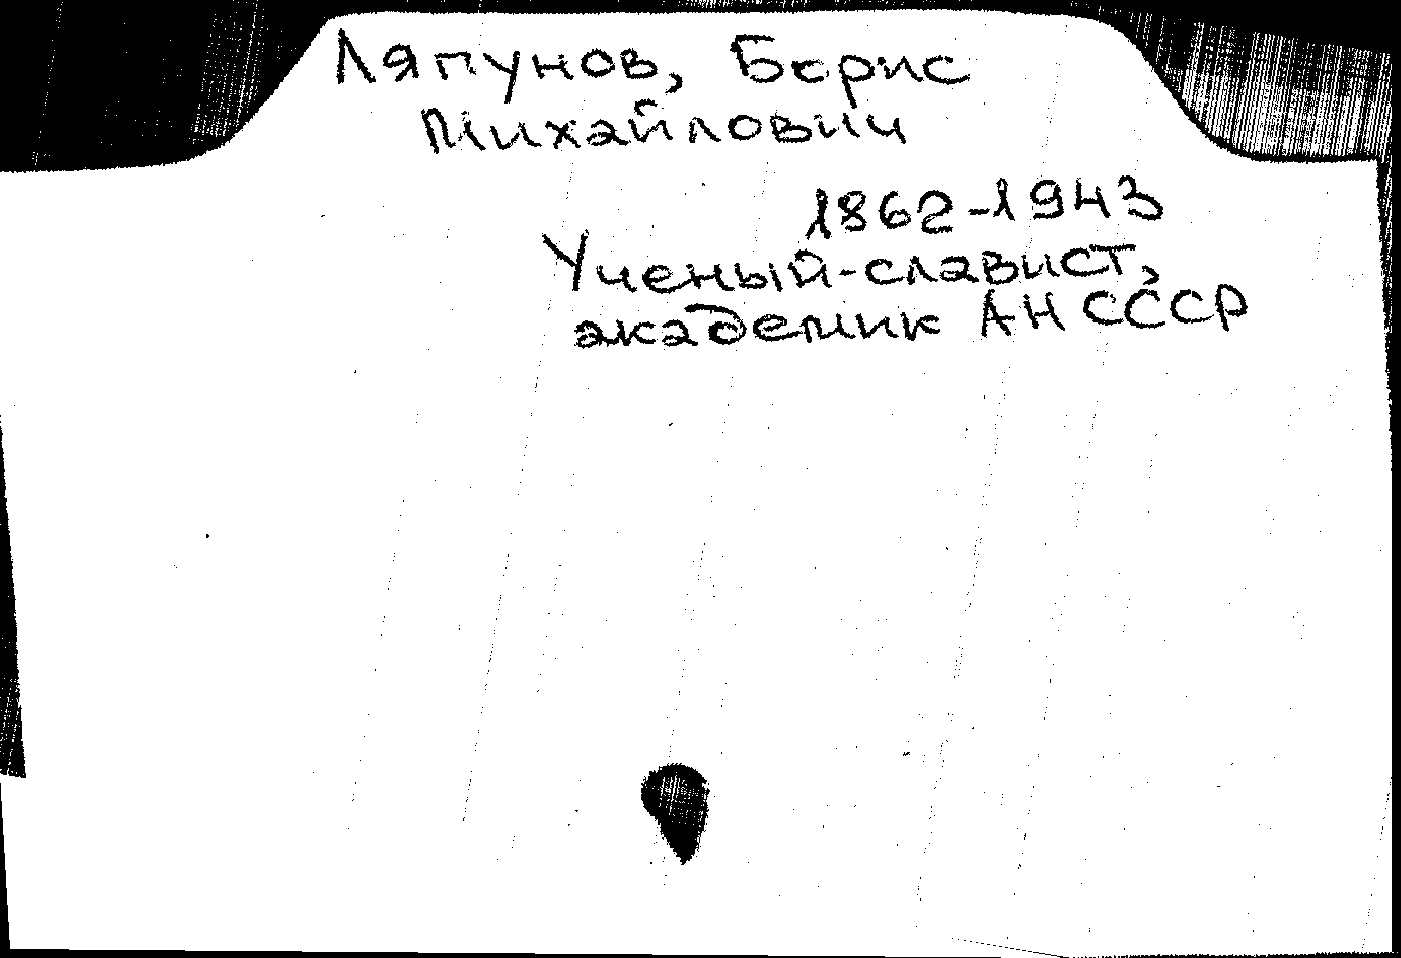 Ляпунов, Борис
Михайлович
1862-1943
Ученый-славист,
академик АН СССР